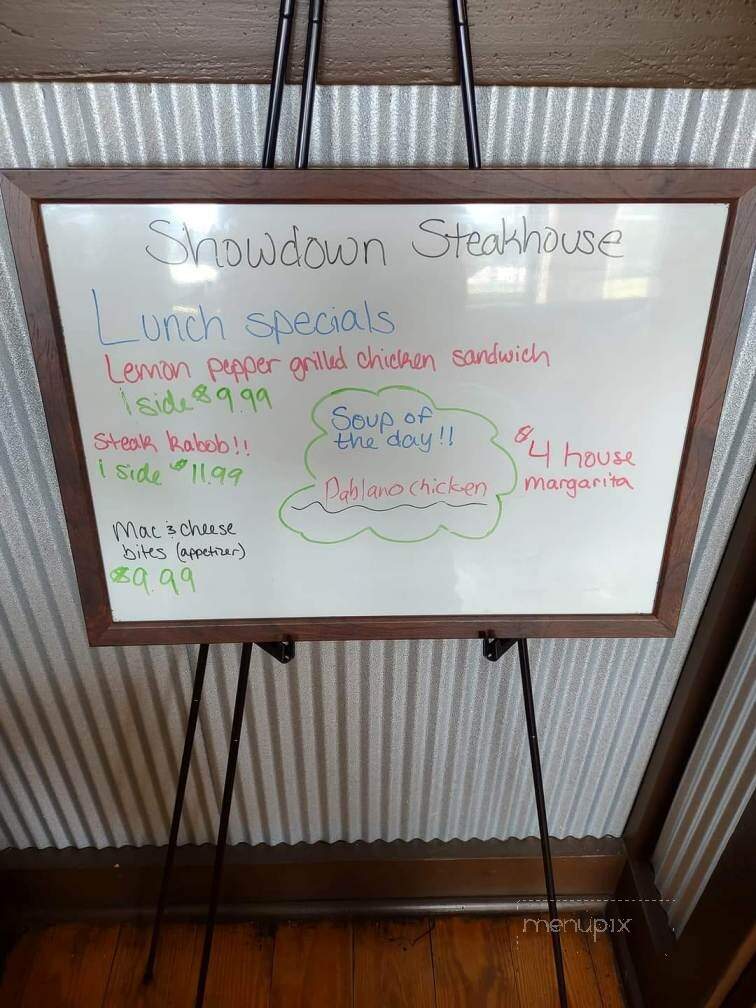 Showdown Steakhouse
Lunch specials
Lemon pepper grilled chicken sandwich
1 side $9.99
Steak kabob!!
1 side $11.99
Mac & cheese
bites (appetizer)
$9.99
Soup of
the day!!
Pablano chicken
$4 house
margarita
menupix